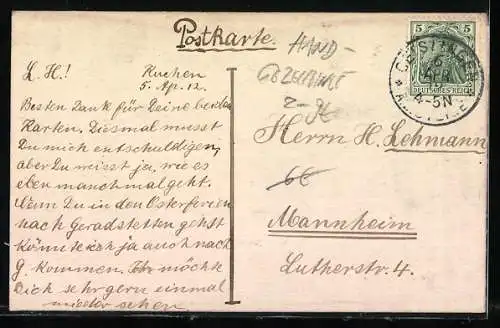 Postkarte.
HAND-
GEZEICHNET
5
5
DEUTSCHES REICH
GEISLINGEN
6
APR
4-5N
L. H!
Kuchen
5. Apr. 12.
Besten Dank für Deine beiden
Karten. Diesmal musst
Du mich entschuldigen,
aber Du weisst ja, wie es
eben manchmal geht.
Wenn Du in den Osterferien
nach Geradstetten gehst
könnte ich ja auch nach
G. kommen. Ich möchte
Dich sehr gern einmal
wieder sehen
Herrn H. Lehmann
Mannheim
Lutherstr. 4.